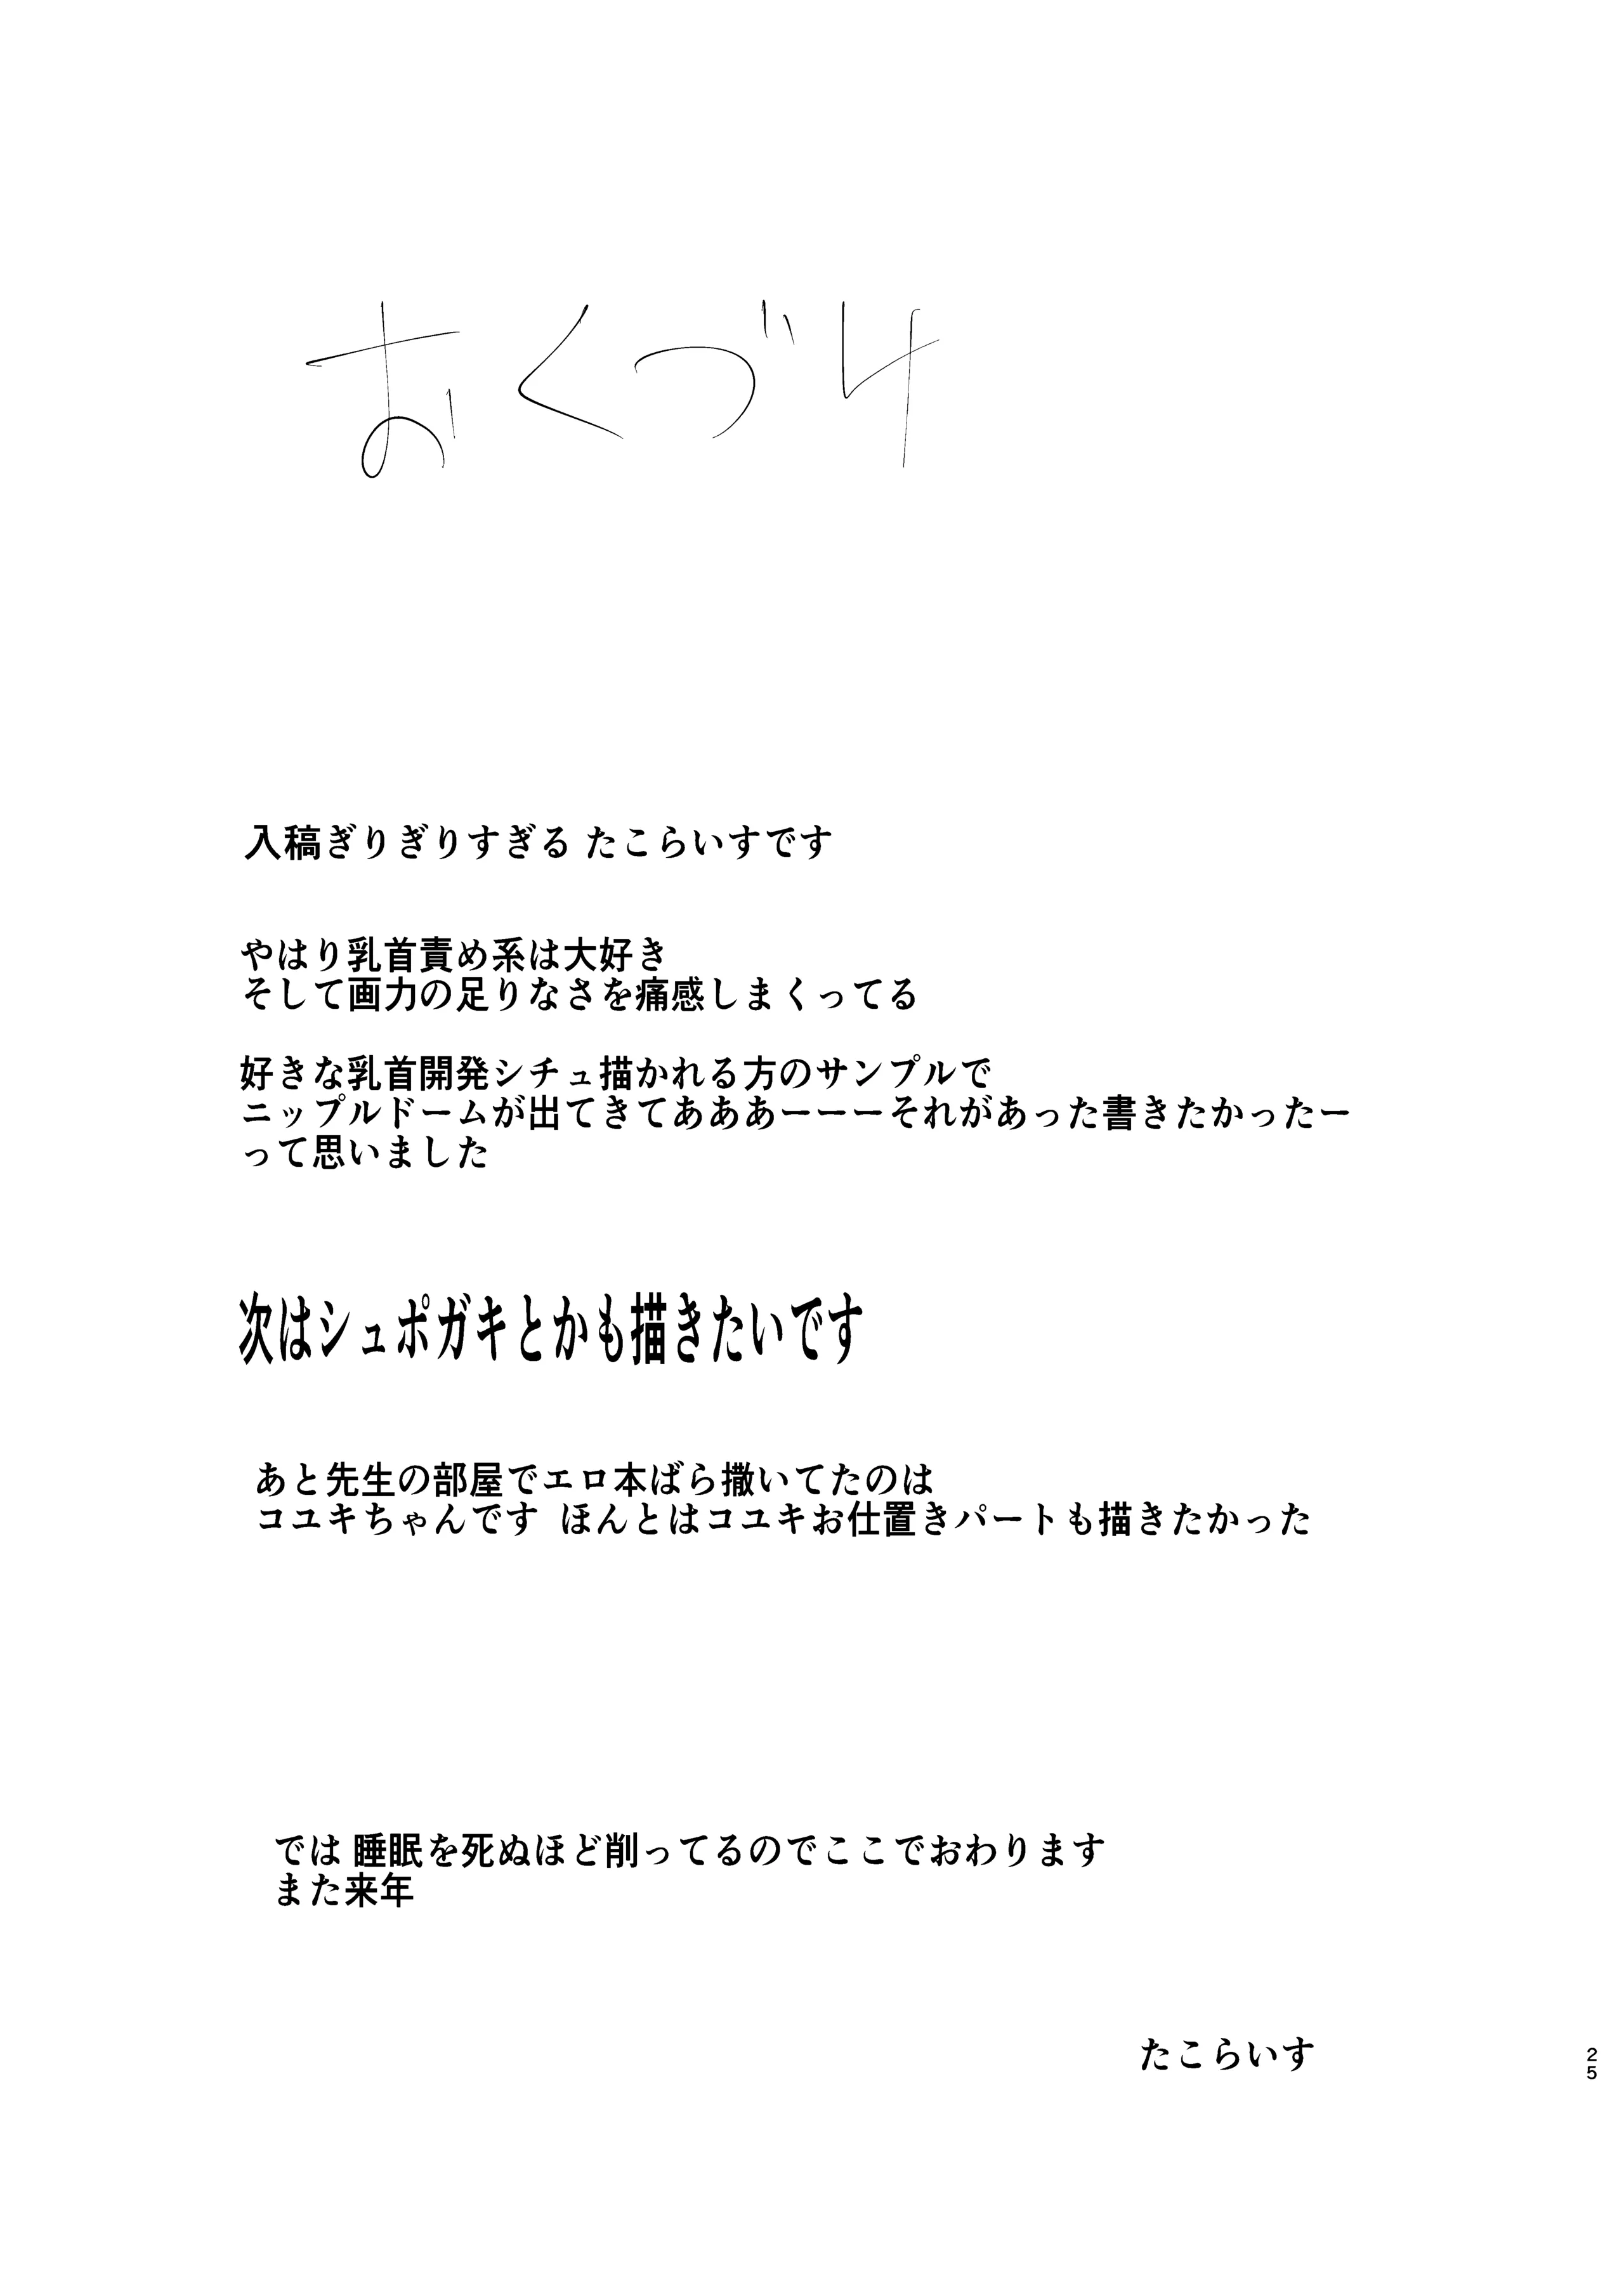 おくづけ
入稿ぎりぎりすぎる たこらいすです
やはり乳首責め系は大好き
そして画力の足りなさを痛感しまくってる
好きな乳首開発シチュ描かれる方のサンプルで
ニップルドームが出てきてあああーーーそれがあった書きたかったー
って思いました
次はシュポガキとかも描きたいです
あと先生の部屋でエロ本ばら撒いてたのは
コユキちゃんです ほんとはコユキお仕置きパートも描きたかった
では 睡眠を死ぬほど削ってるのでここでおわります
また来年
たこらいす
25